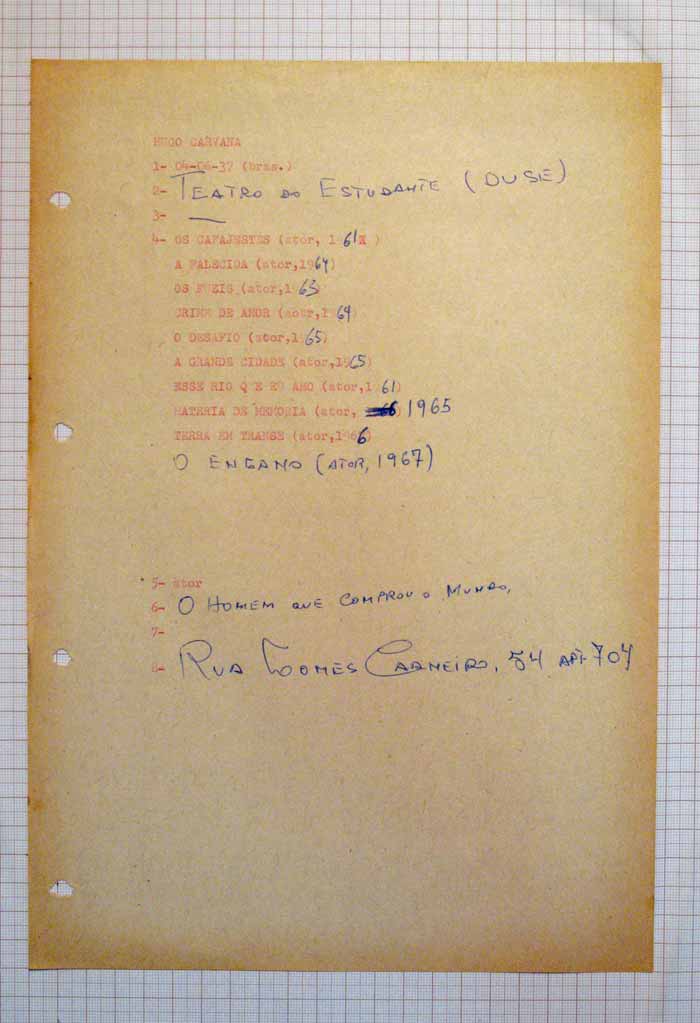 HUGO CARVANA
1- 04-06-37 (bras.)
2- TEATRO DO ESTUDANTE (DUSE)
3- —
4- OS CAFAJESTES (ator, 1961X )
A FALECIDA (ator,1964)
OS FUZIS (ator,1963)
CRIME DE AMOR (aotr,1964)
O DESAFIO (ator,1965)
A GRANDE CIDADE (ator,1965)
ESSE RIO QUE EU AMO (ator,1961)
MATERIA DE MEMORIA (ator, 66) 1965
TERRA EM TRANSE (ator,1966)
O ENGANO (ATOR, 1967)
5- ator
6- O HOMEM QUE COMPROU O MUNDO,
7-
8- RUA GOMES CARNEIRO, 54 APT- 704